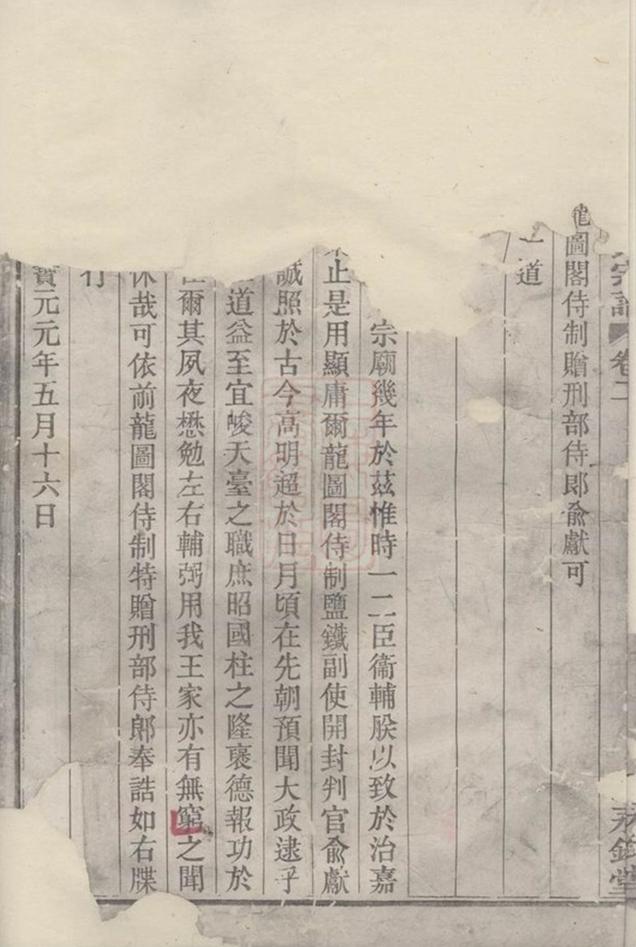 宗譜 卷二
龍圖閣侍制贈刑部侍郎俞獻可
一道
宗廟幾年於茲惟時一二臣衞輔朕以致於治嘉
止是用顯庸爾龍圖閣侍制鹽鐵副使開封判官俞獻
誠照於古今高明超於日月頃在先朝預聞大政逮乎
道益至宜峻天臺之職庶昭國柱之隆襃德報功於
爾其夙夜懋勉左右輔弼用我王家亦有無窮之聞
休哉可依前龍圖閣侍制特贈刑部侍郎奉誥如右牒
行
寶元元年五月十六日